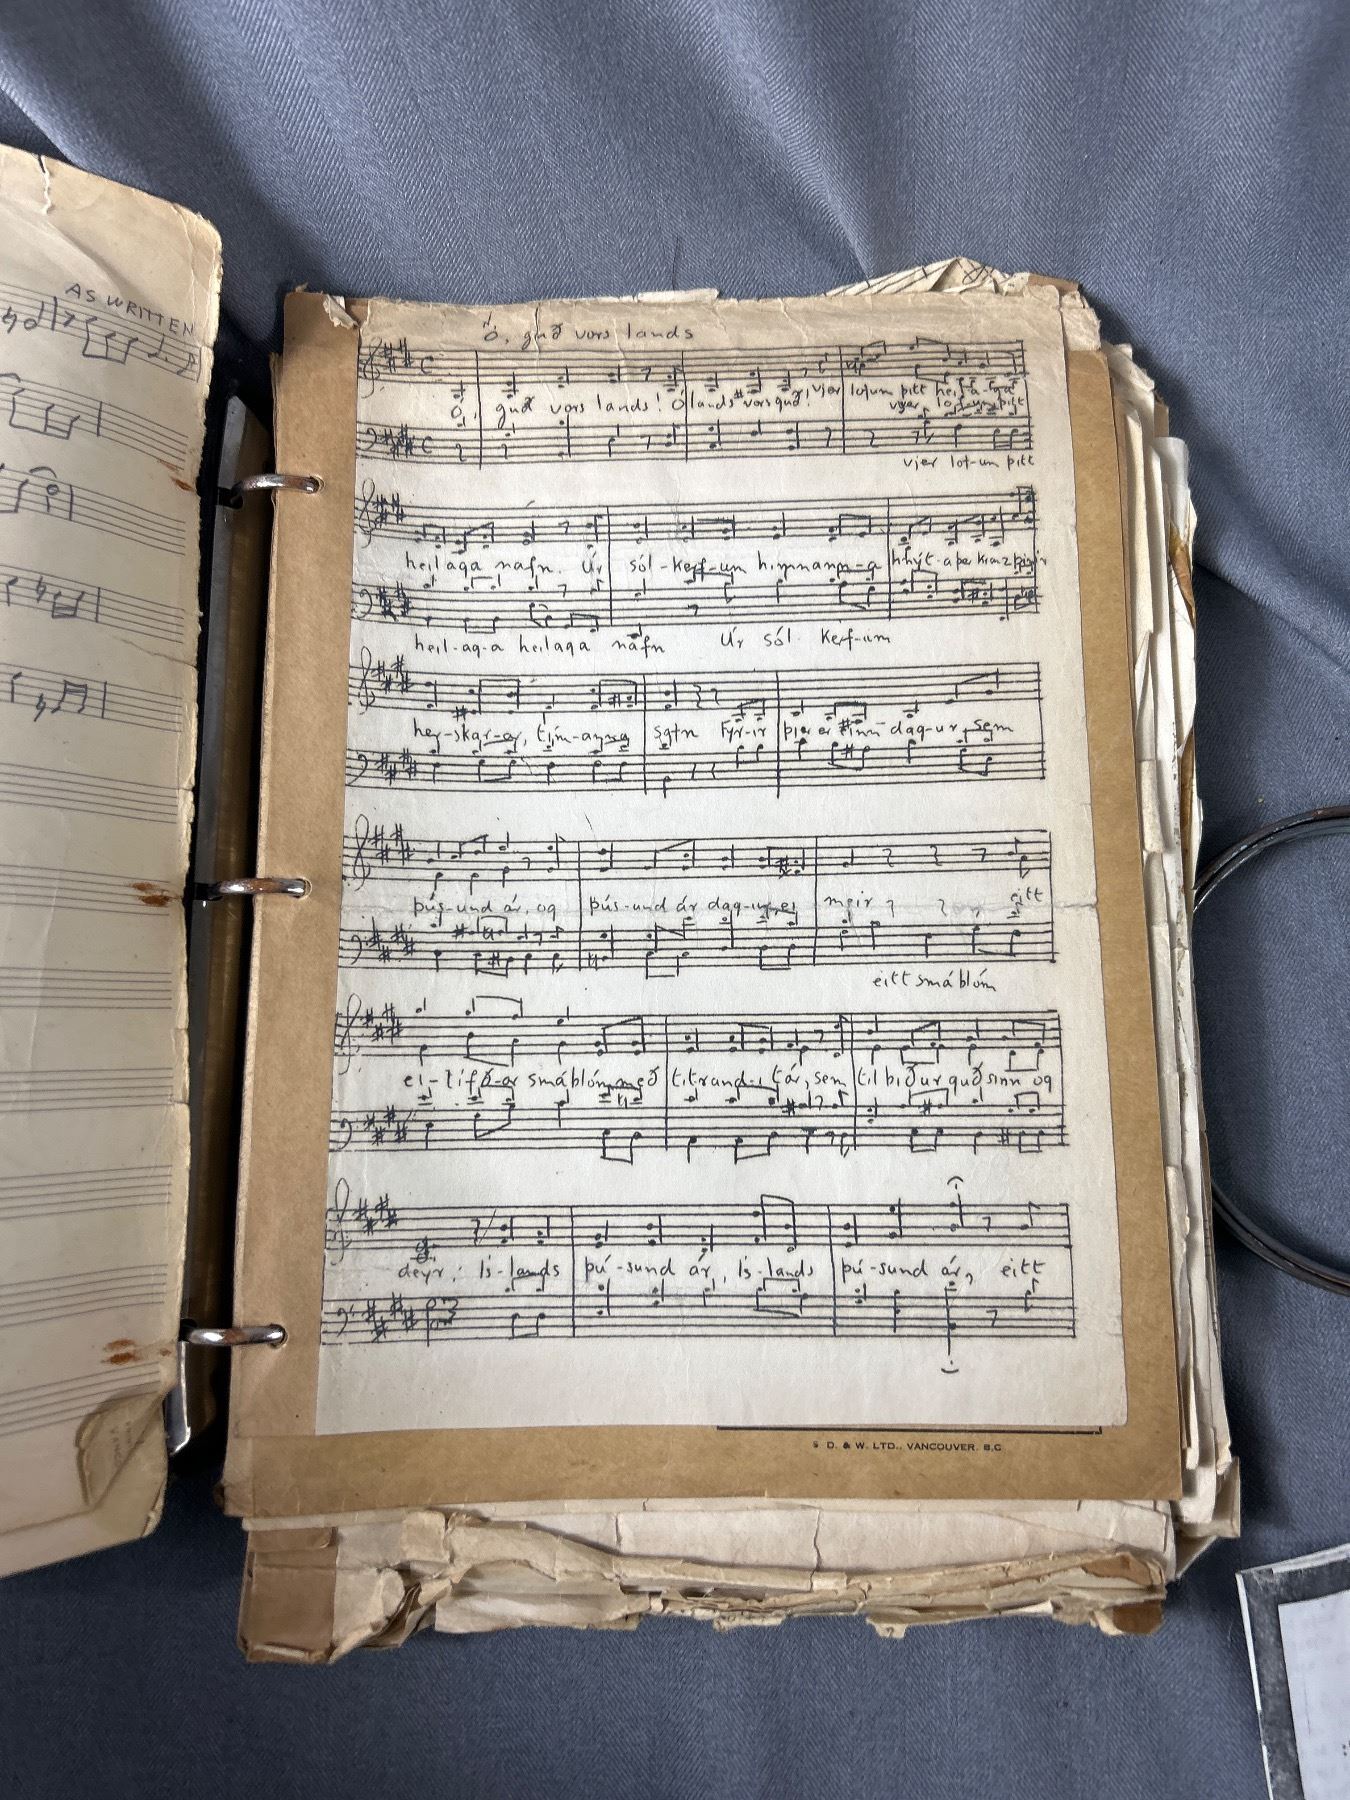 AS WRITTEN
Ó, guð vors lands
Ó, guð vors lands! Ó lands vors guð! vjer lofum þitt heil-a-ga
vjer lof-um þitt
vjer lof-um þitt
heilaga nafn. Úr sól-kerf-um himnann-a hnýt-a þer kranz þínir
heil-ag-a heilaga nafn Úr sól kerf-um
her-skar-ar, tím-anna safn Fyr-ir þjer er einn dag-ur, sem
þús-und ár, og þús-und ár dag-ur, ei meir eitt
eitt smáblóm
ei-lífð-ar smáblóm með titrand-i tár, sem tilbiður guð sinn og
deyr; Ís-lands þú-sund ár, Ís-lands þú-sund ár, eitt
S. D. & W. LTD., VANCOUVER, B.C.